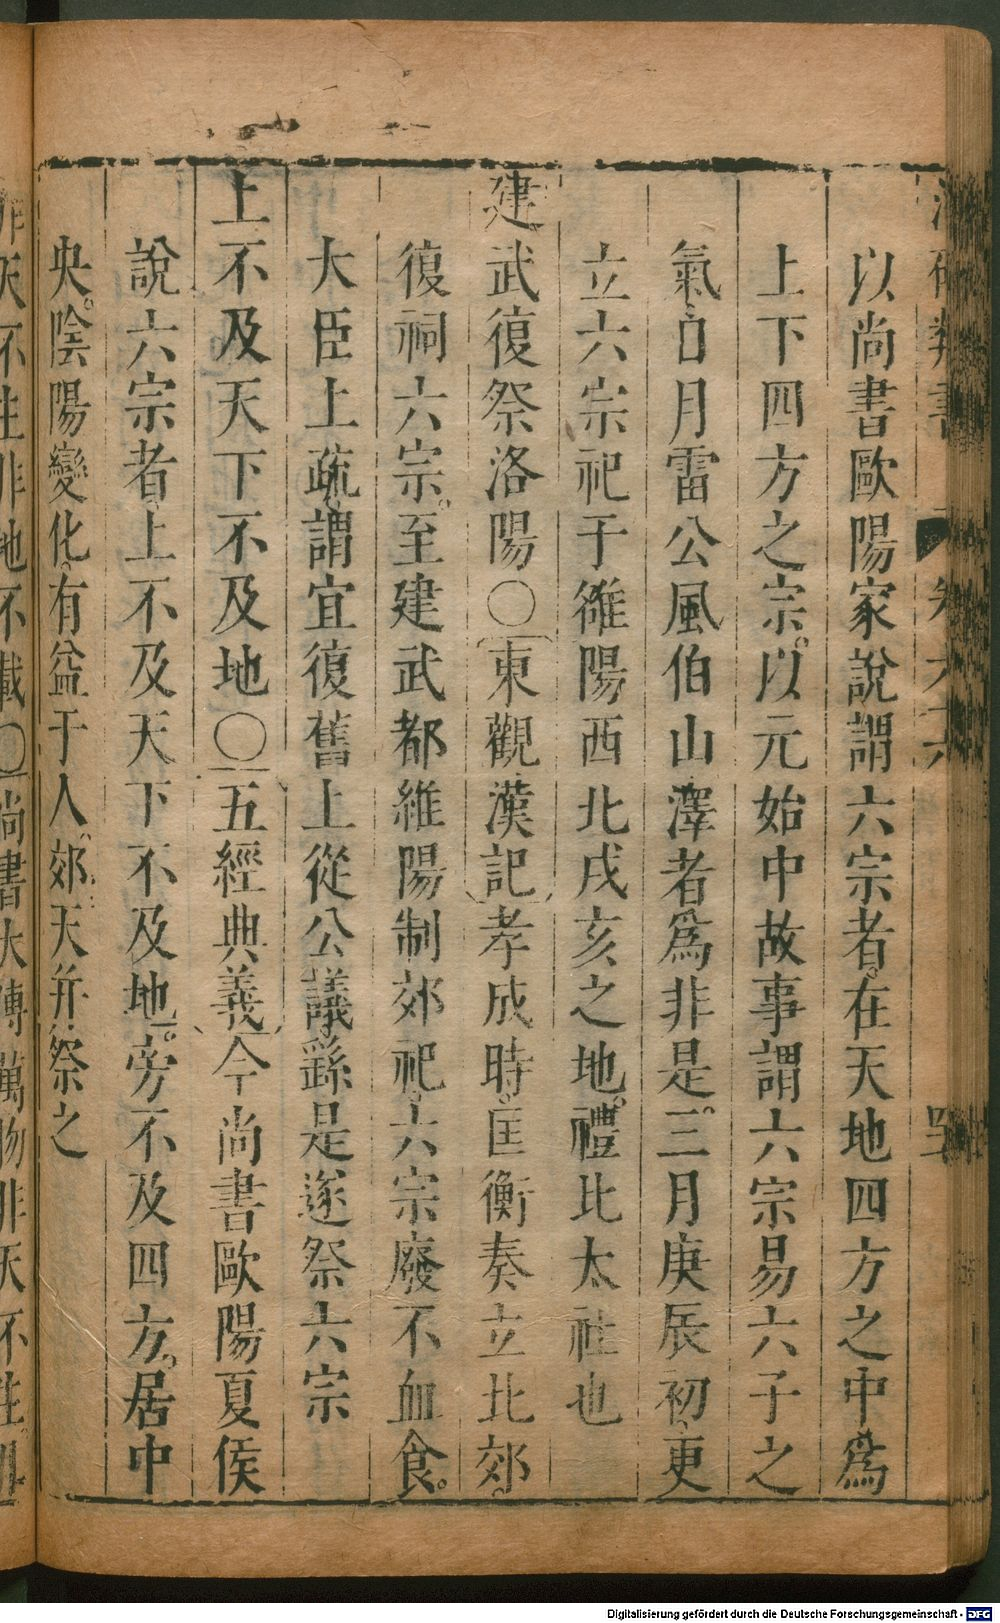 以尚書歐陽家說謂六宗者在天地四方之中爲
上下四方之宗。以元始中故事謂六宗易六子之
氣日月雷公風伯山澤者爲非是。三月庚辰初更
立六宗祀于雒陽西北戌亥之地。禮比太社也
建武復祭洛陽〇東觀漢記孝成時匡衡奏立北郊。
復祠六宗。至建武都維陽制郊祀。六宗廢不血食。
大臣上疏謂宜復舊上從公議繇是遂祭六宗
上不及天下不及地〇五經典義今尚書歐陽夏侯
說六宗者上不及天下不及地。旁不及四方。居中
央。陰陽變化有益于人。郊天并祭之
非天不生非地不載〇尚書大傳萬物非天不生
Digitalisierung gefördert durch die Deutsche Forschungsgemeinschaft - DFG